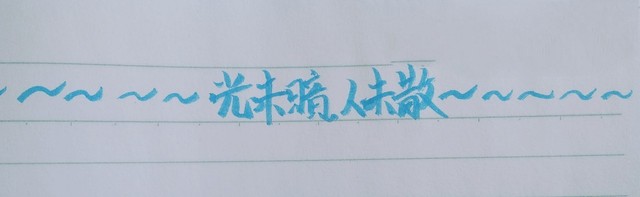 ~~~~光未暗,人未散~~~~~